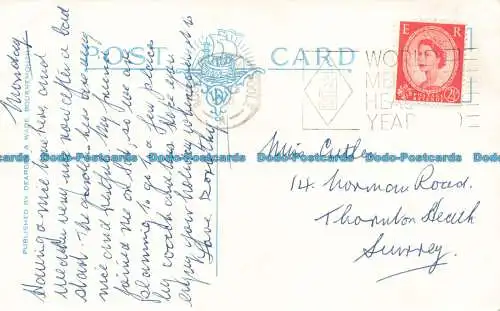 POST CARD
PUBLISHED BY DEARDEN & WADE BOURNEMOUTH
Monday
Having a nice time here, and
weather very nice now after a bad
start. The garden here is very
nice and restful. My friend
joined me on Sat, so we are
planning to go a few places
by coach and so. Hope you
enjoy your holiday whenever it is
Love Dorothy
WORLD
ME
HEA
YEAR
E R
2½D
Miss Cutler,
14. Norman Road.
Thornton Heath
Surrey.
Dodo-Postcards Dodo-Postcards Dodo-Postcards Dodo-Postcards Dodo-Postcards